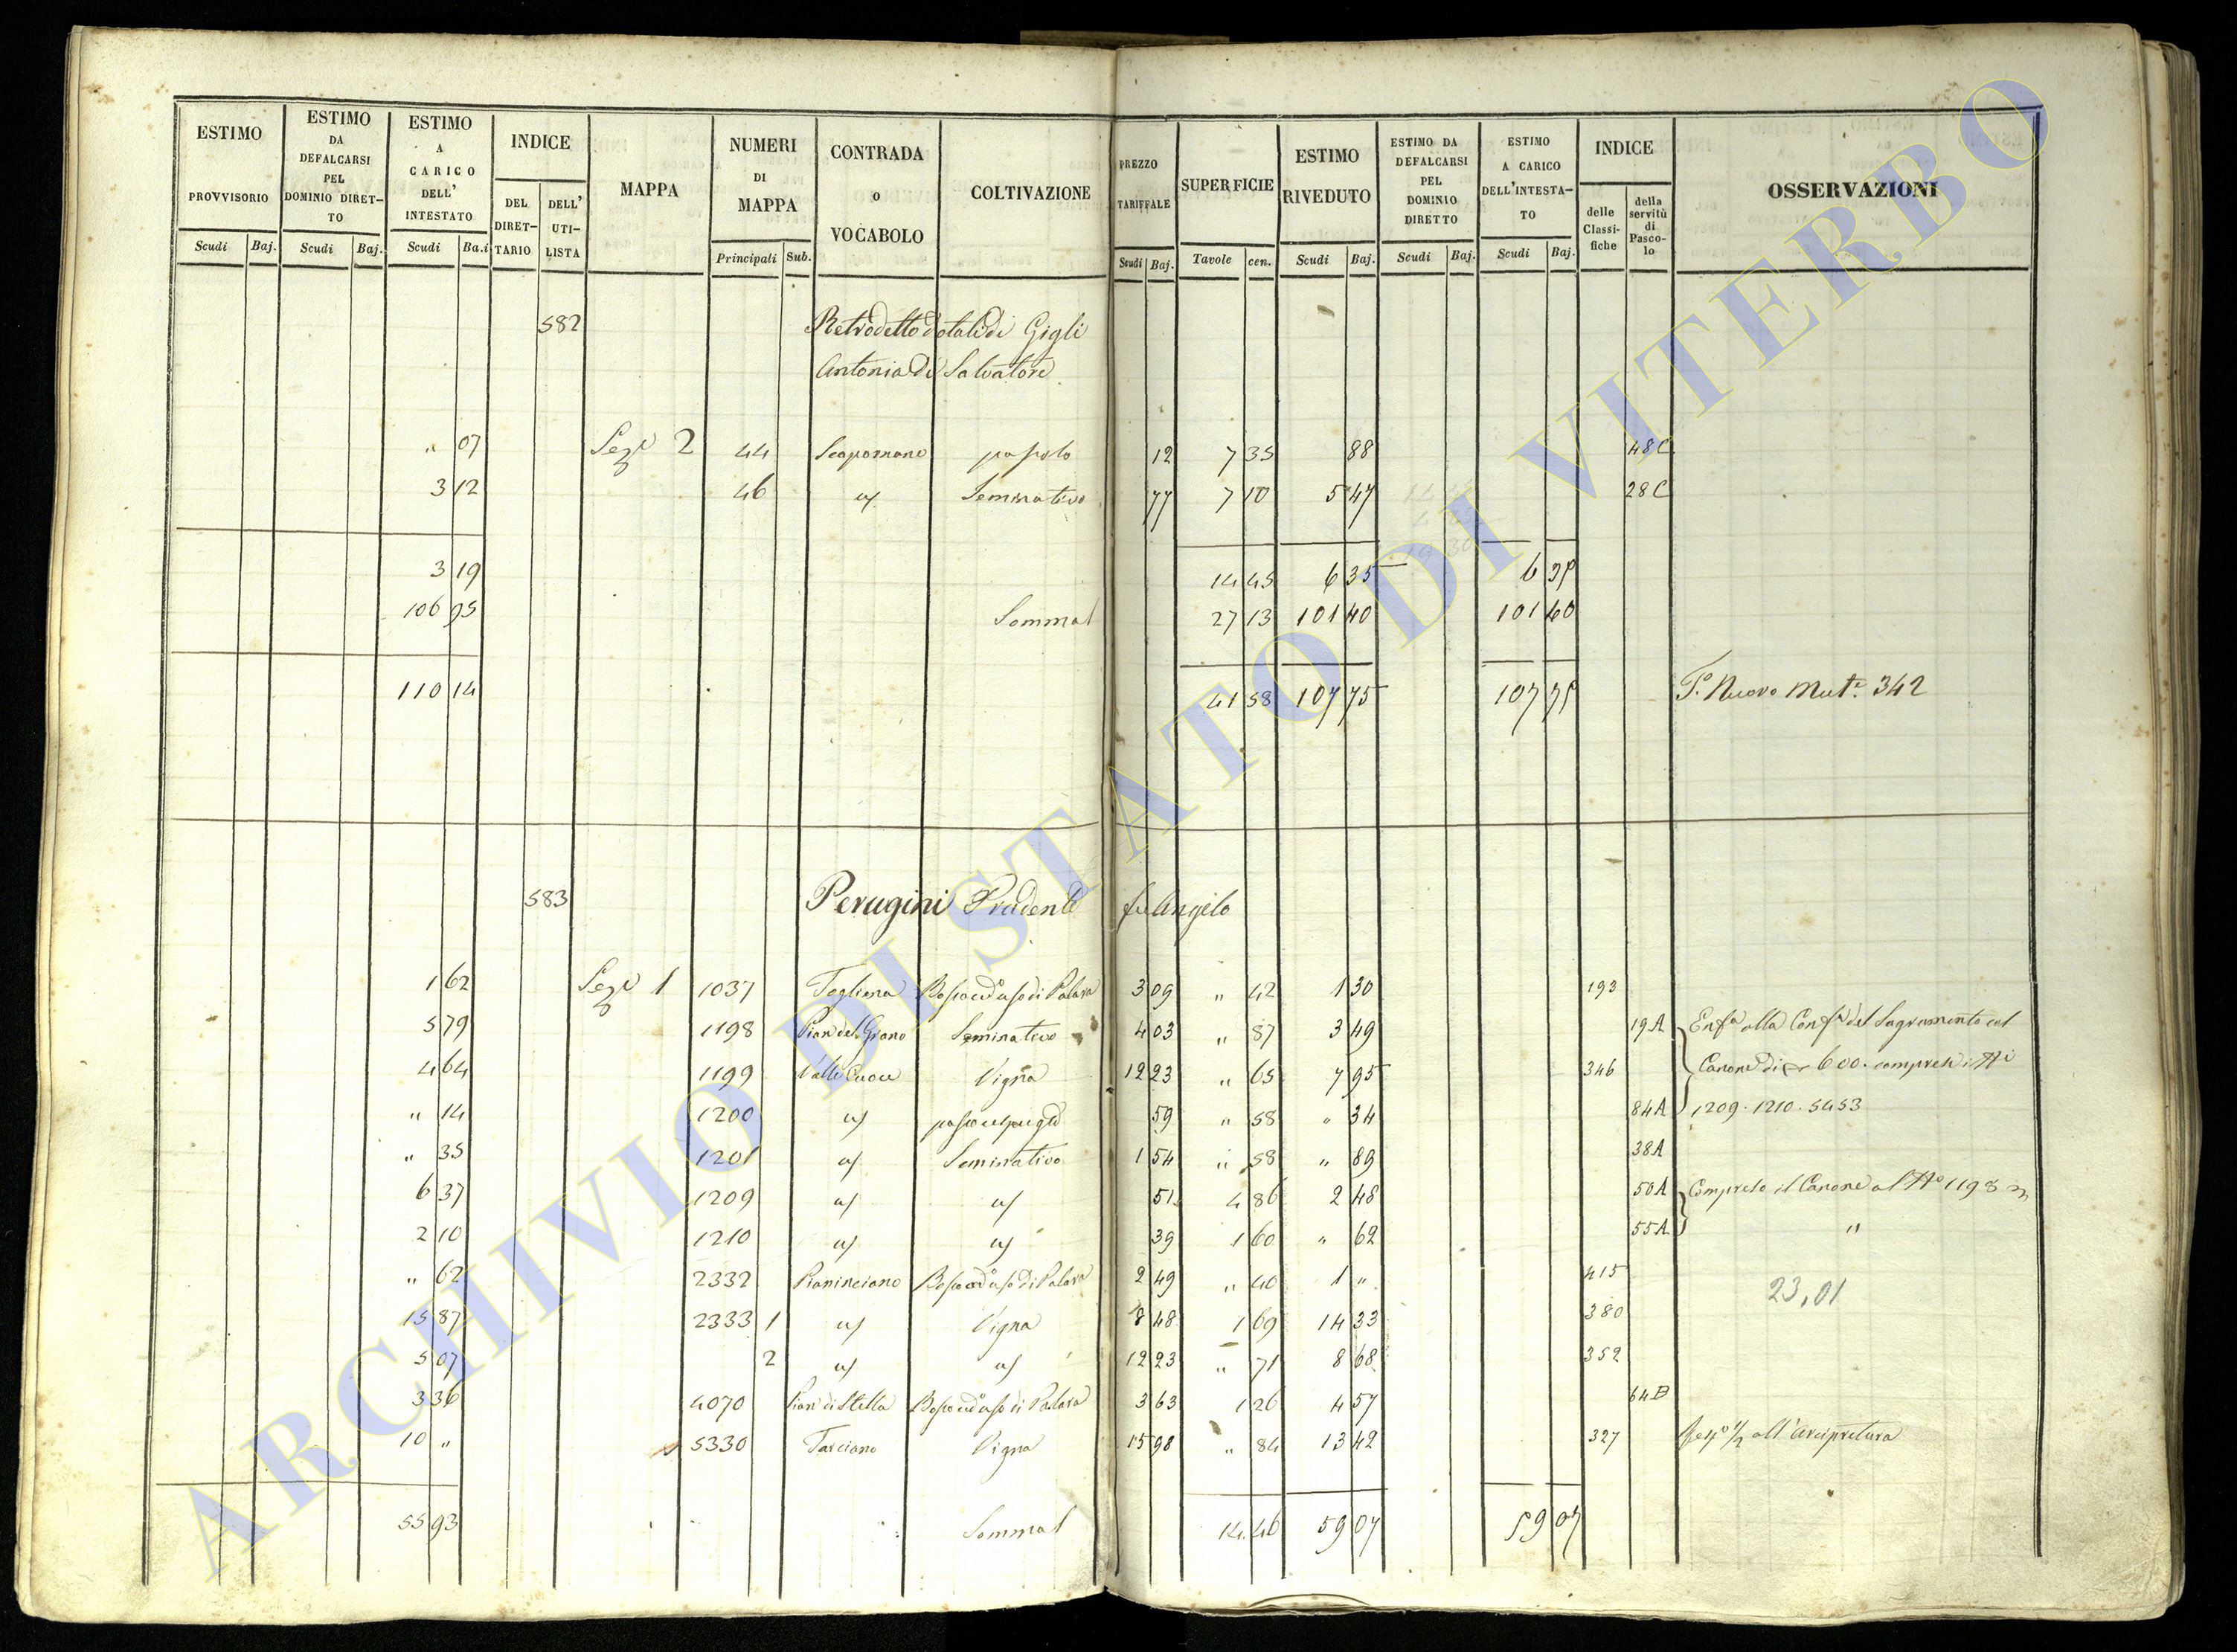 ESTIMO PROVVISORIO Scudi Baj.
ESTIMO DA DEFALCARSI PEL DOMINIO DIRET-TO Scudi Baj.
ESTIMO A CARICO DELL' INTESTATO Scudi Ba.i
INDICE DEL DIRET-TARIO DELL' UTI-LISTA
MAPPA
NUMERI DI MAPPA Principali Sub.
CONTRADA o VOCABOLO
COLTIVAZIONE
PREZZO TARIFFALE Scudi Baj.
SUPERFICIE Tavole cen.
ESTIMO RIVEDUTO Scudi Baj.
ESTIMO DA DEFALCARSI PEL DOMINIO DIRETTO Scudi Baj.
ESTIMO A CARICO DELL'INTESTA-TO Scudi Baj.
INDICE delle Classi-fiche della servitù di Pasco-lo
OSSERVAZIONI
582 Retrodetto Dotali di Gigli
Antonia di Salvatore
" 07 Sez.e 2 44 pascolo 12 7 35 88 48 C
3 12 46 Seminativo 77 7 10 5 47 28 C
3 19 14 45 6 35 6 35
106 95 Somma 27 13 101 40 101 40
110 14 41 58 107 75 107 75 P. Nuovo Mut.e 342
583 Perugini Prudente fu Angelo
1 62 Sez.e 1 1037 3 09 " 42 1 30 193
5 79 1198 Pian del Grano Seminativo 4 03 " 87 3 49 19 A Enf.a alla Conf.a del Sagramento col
4 64 1199 Valle Cuoce Vigna 12 23 " 65 7 95 346 Canone di 6 00. compresi i Ni
" 14 1200 59 " 58 " 34 84 A 1209. 1210. 5453
" 35 1201 Seminativo 1 54 " 58 " 89 38 A
6 37 1209 51 4 86 2 48 50 A Compreso il Canone al No 1198
2 10 1210 39 1 60 " 62 55 A "
" 62 2332 Pianinciano 2 49 " 40 1 " 415
23,01
15 87 2333 1 Vigna 8 48 1 69 14 33 380
5 07 2 12 23 " 71 8 68 352
3 36 4070 Pian di Stella 3 63 1 26 4 57 64 B
10 " 5330 Tarciano Vigna 15 98 " 84 13 42 327 1/2 all'Arcipretura
55 93 Somma 14 46 59 07 59 07
ARCHIVIO DI STATO DI VITERBO